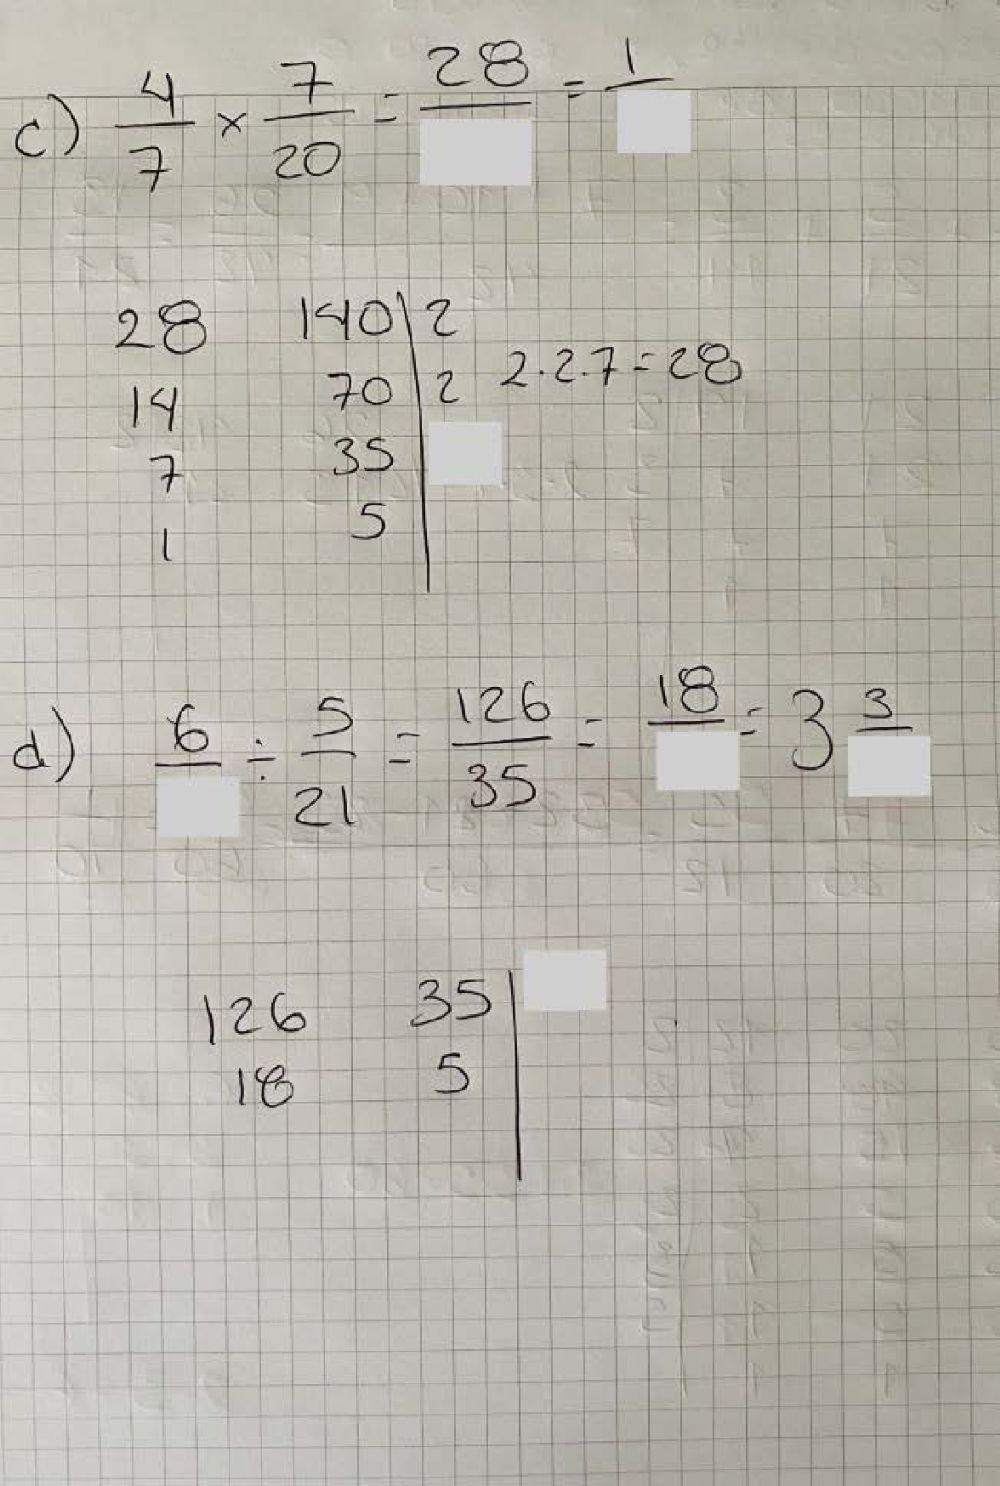 c) 4/7 × 7/20 = 28/ = 1/
28 140 | 2
14 70 | 2 2.2.7=28
7 35 |
1 5 |
d) 6/ ÷ 5/21 = 126/35 = 18/ = 3 3/
126 35 |
18 5 |